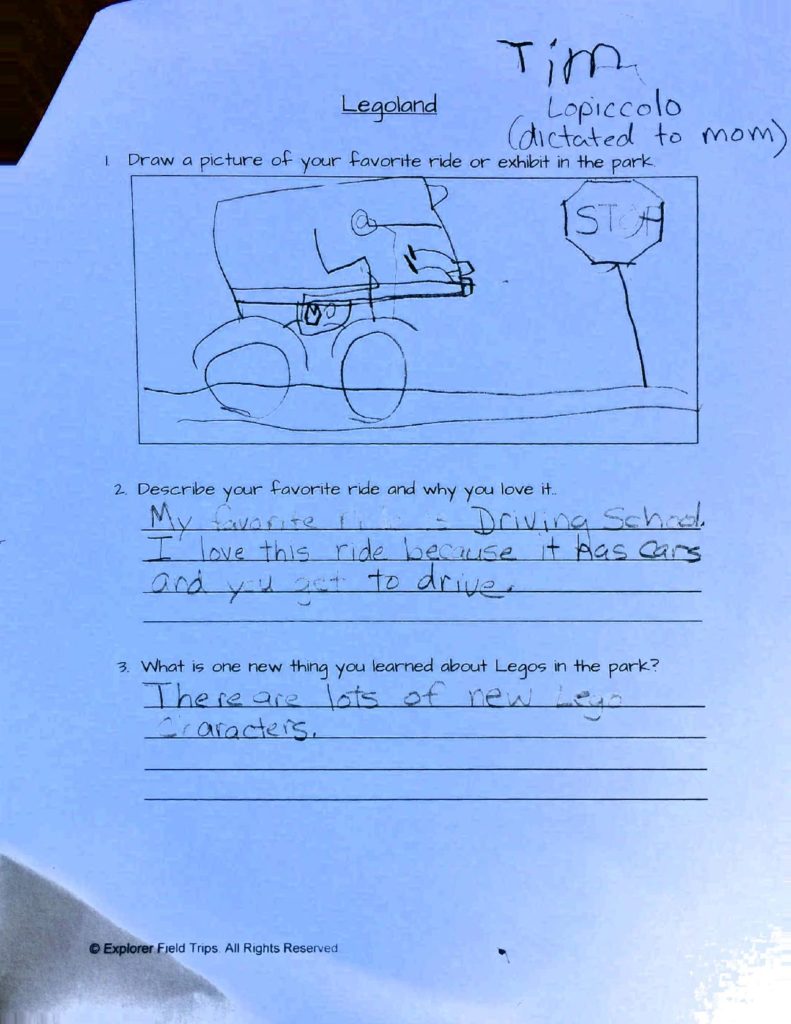 Tim
Lopiccolo
(dictated to mom)
Legoland
1. Draw a picture of your favorite ride or exhibit in the park.
STOP
2. Describe your favorite ride and why you love it..
My favorite ride is Driving School.
I love this ride because it has cars
and you get to drive.
3. What is one new thing you learned about Legos in the park?
There are lots of new Lego
Characters.
© Explorer Field Trips. All Rights Reserved